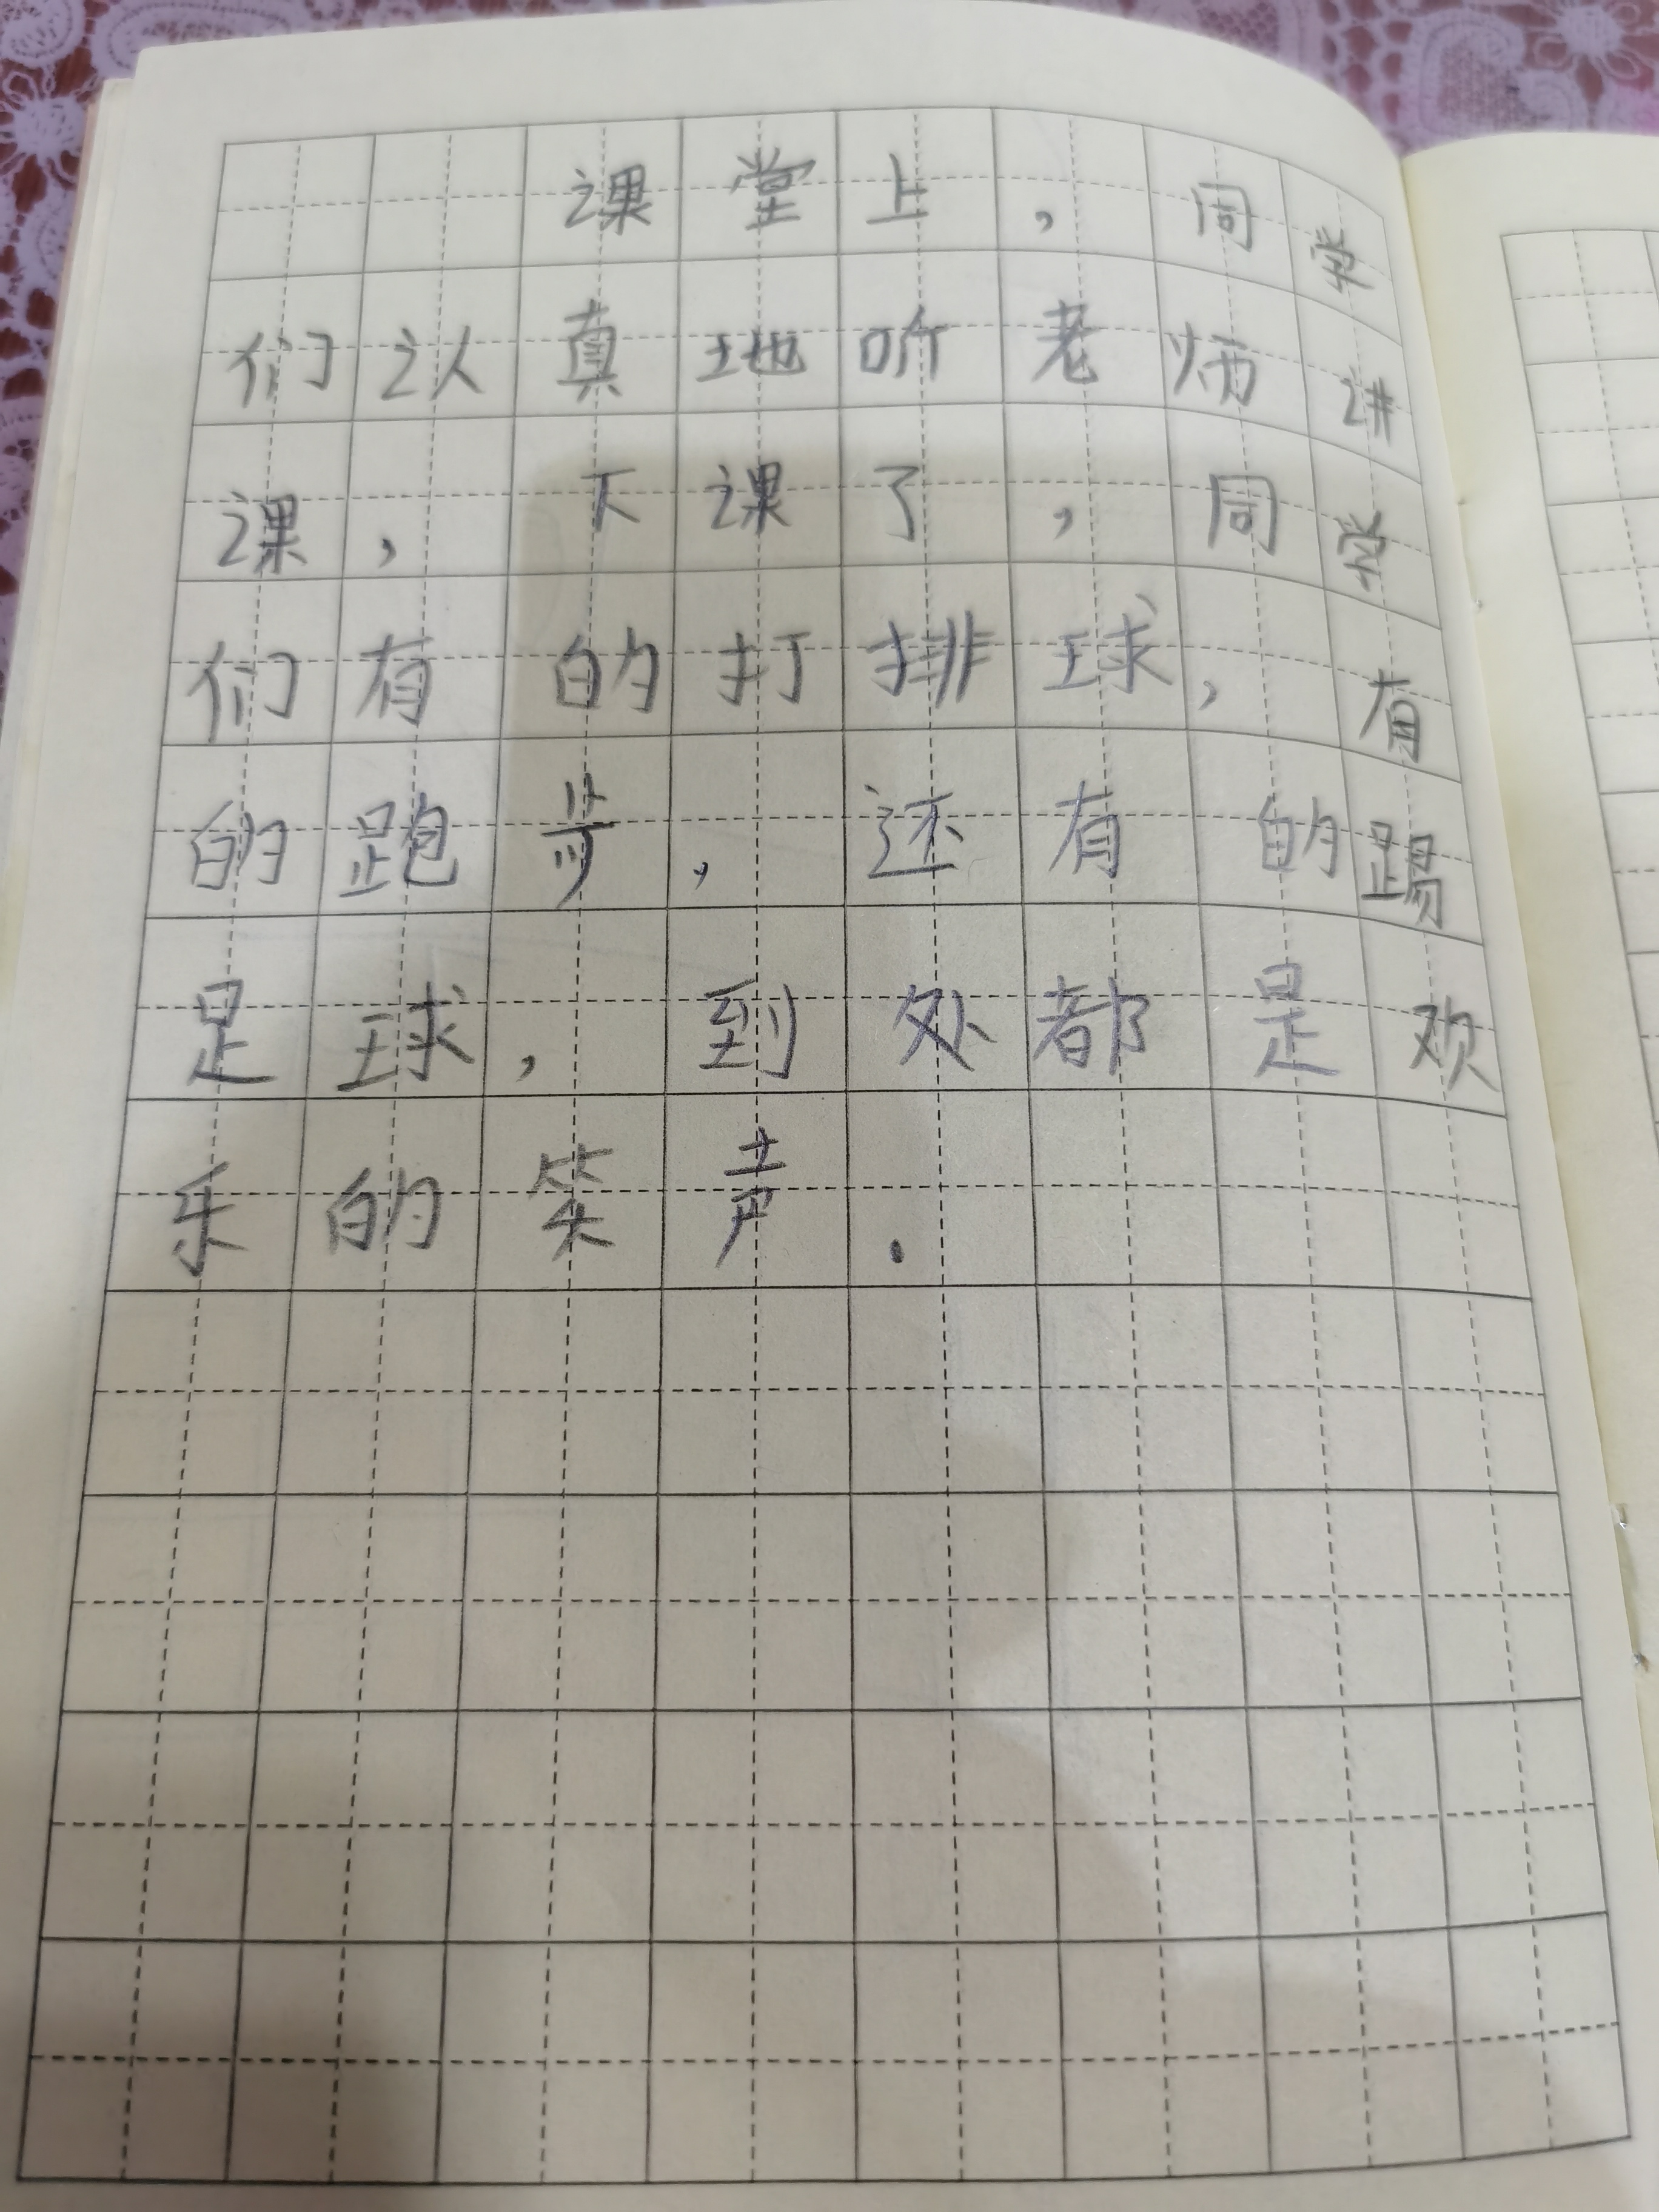 课堂上，同学
们认真地听老师讲
课，下课了，同学
们有的打排球，有
的跑步，还有的踢
足球，到处都是欢
乐的笑声.